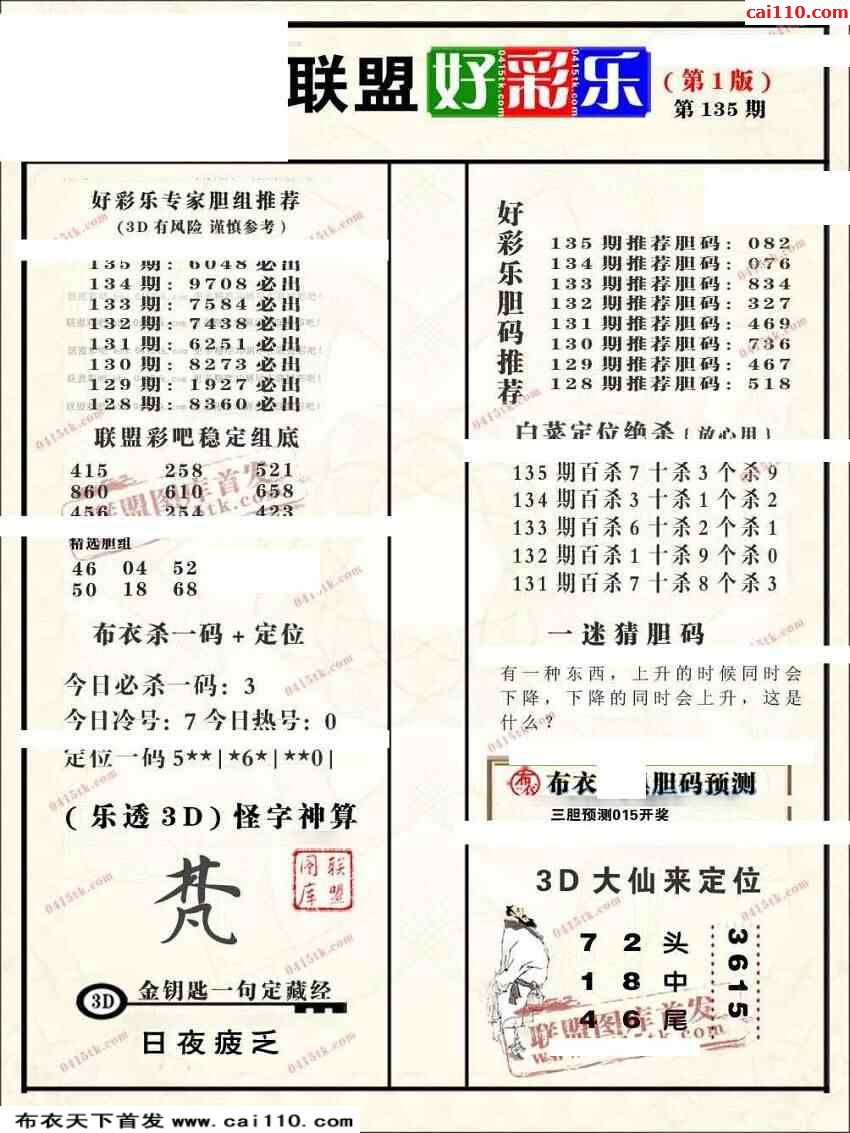 cai110.com
联盟好彩乐
(第1版)
第135期
好彩乐专家胆组推荐
(3D有风险 谨慎参考)
135期: 6048必出
134期: 9708必出
133期: 7584必出
132期: 7438必出
131期: 6251必出
130期: 8273必出
129期: 1927必出
128期: 8360必出
联盟彩吧稳定组底
415 258 521
860 610 658
456 254 423
精选胆组
46 04 52
50 18 68
布衣杀一码+定位
今日必杀一码: 3
今日冷号: 7 今日热号: 0
定位一码 5**|*6*|**0|
(乐透3D)怪字神算
梵
联盟图库
3D 金钥匙一句定藏经
日夜疲乏
好彩乐胆码推荐
135期推荐胆码: 082
134期推荐胆码: 076
133期推荐胆码: 834
132期推荐胆码: 327
131期推荐胆码: 469
130期推荐胆码: 736
129期推荐胆码: 467
128期推荐胆码: 518
白菜定位绝杀{放心用}
135期百杀7十杀3个杀9
134期百杀3十杀1个杀2
133期百杀6十杀2个杀1
132期百杀1十杀9个杀0
131期百杀7十杀8个杀3
一迷猜胆码
有一种东西，上升的时候同时会
下降，下降的同时会上升，这是
什么？
布衣
胆码预测
三胆预测015开奖
3D大仙来定位
7 2 头
1 8 中
4 6 尾
3615
联盟图库首发
0415tk.com
布衣天下首发 www.cai110.com